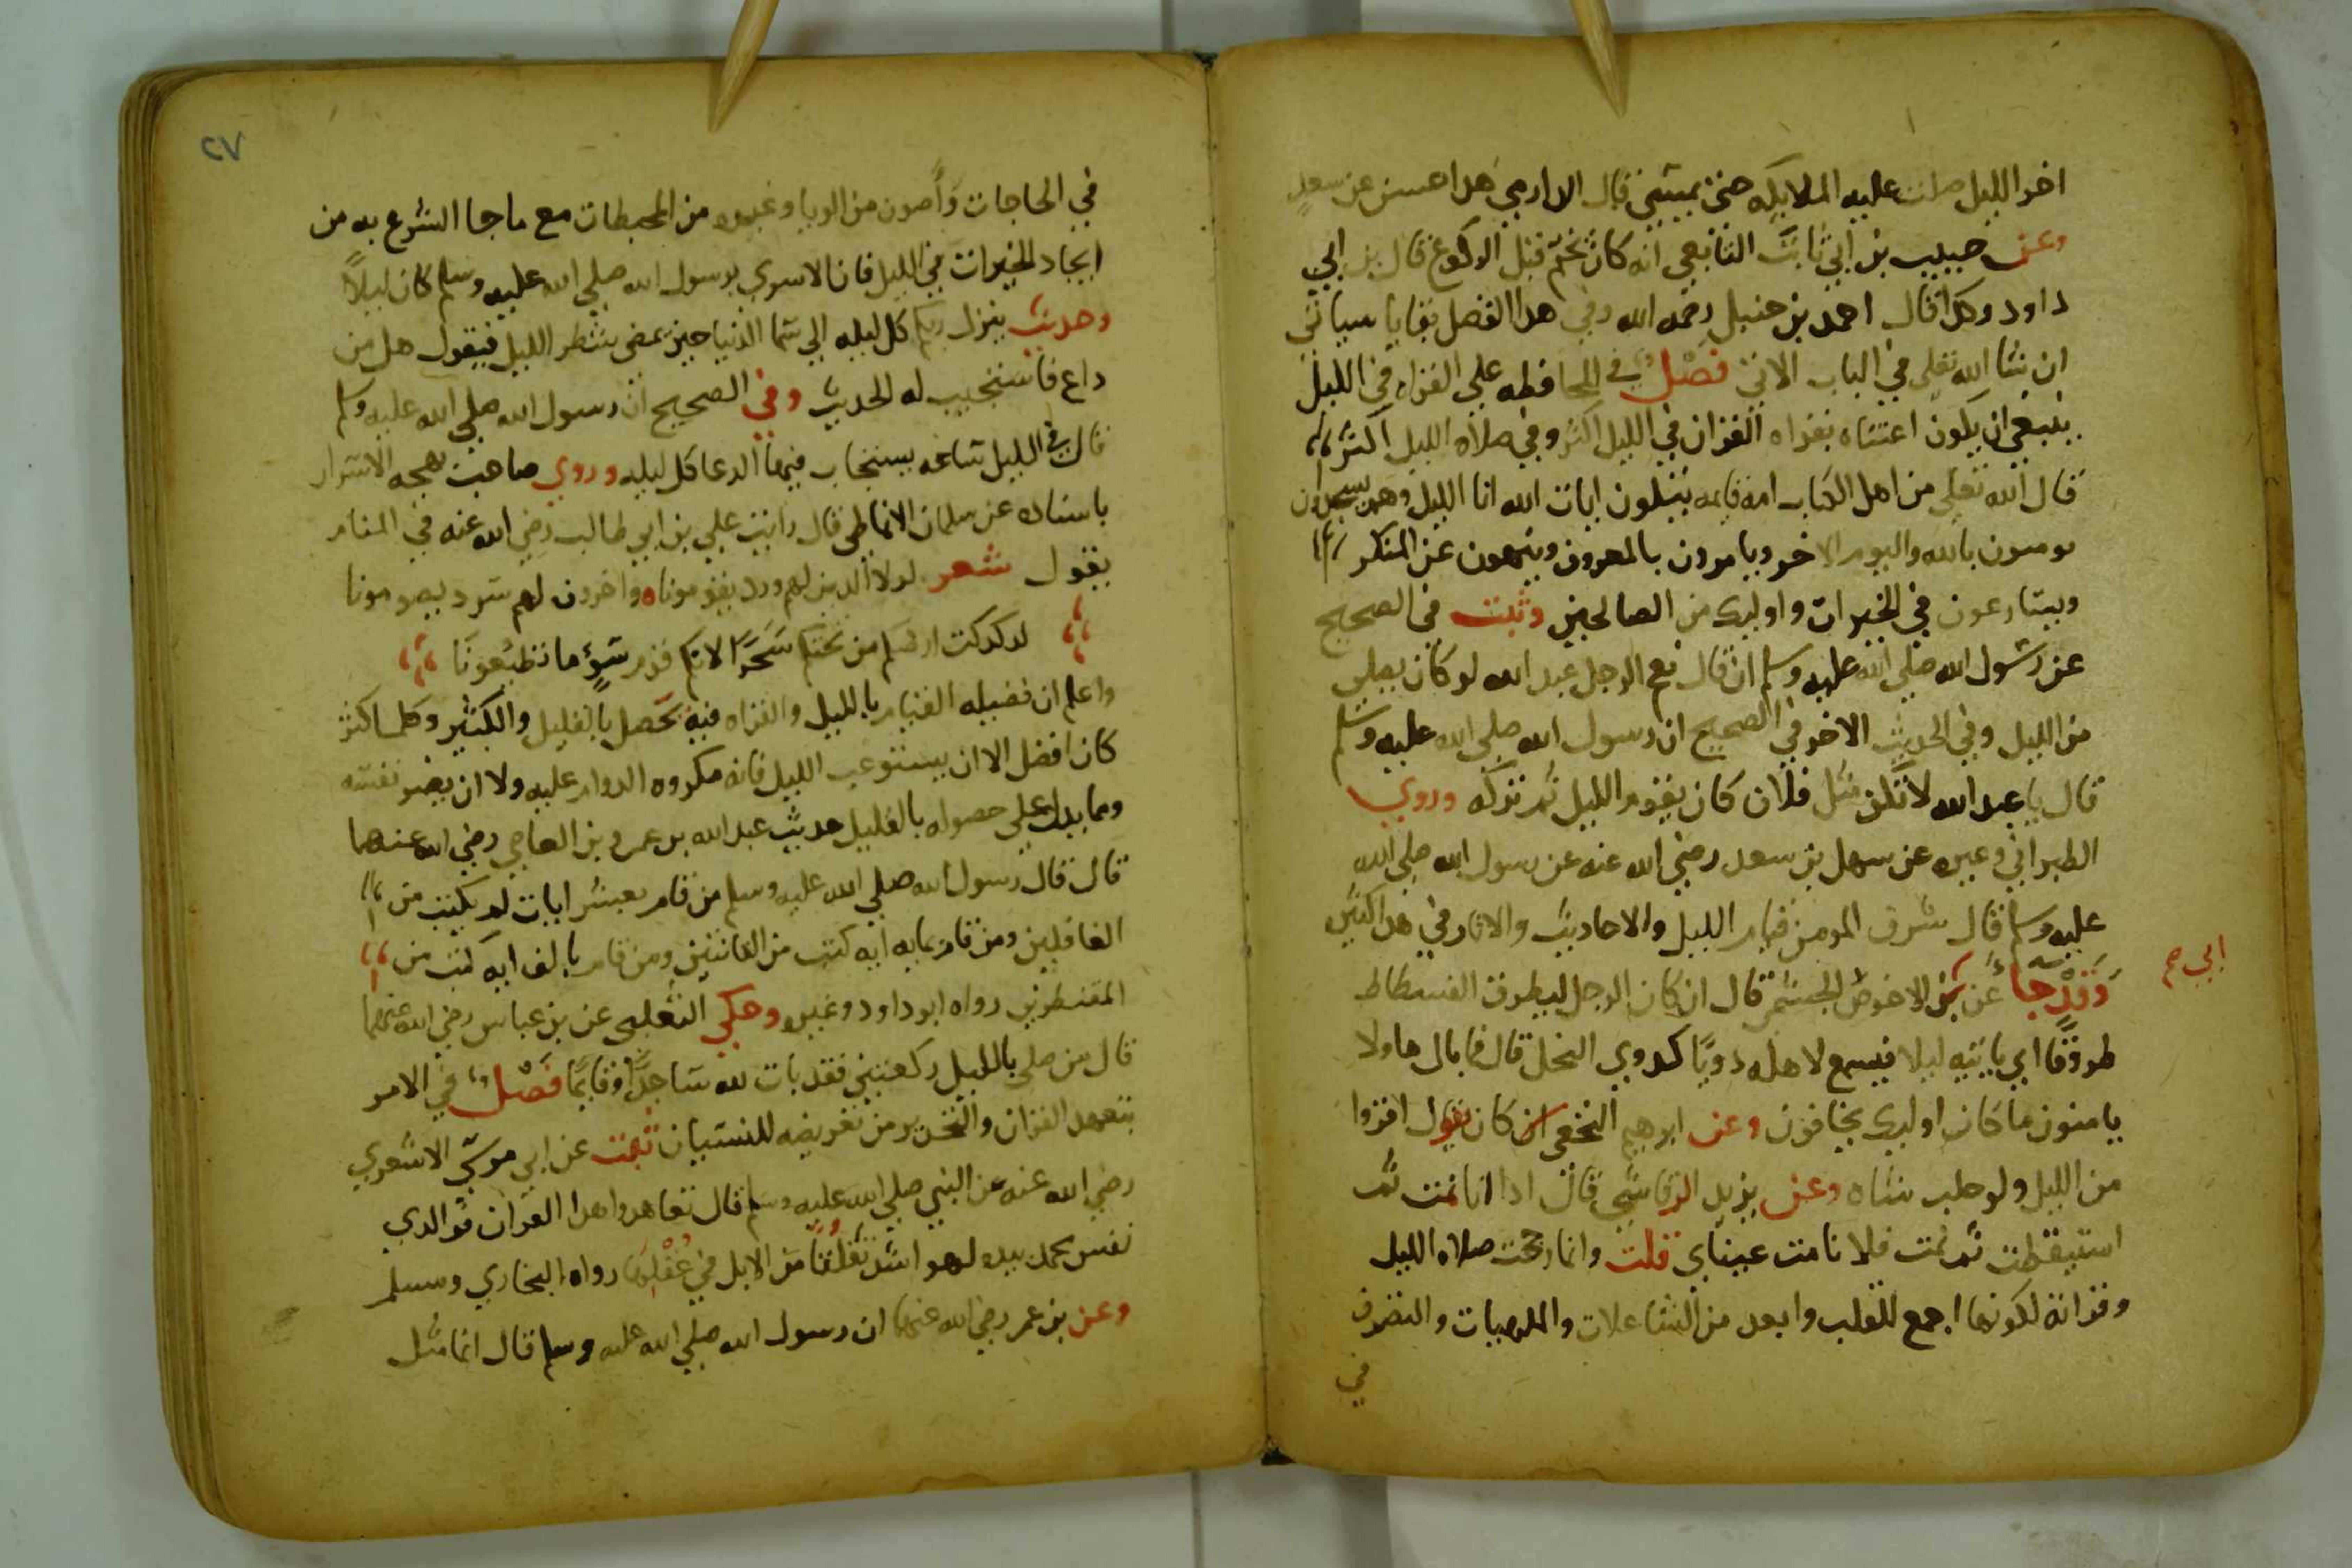 اخر الليل صلت عليه الملايكه حتى يمسي قال الدارمي هذا حسن عن سعد
وعن حبيب بن ابي ثابت التابعي انه كان يختم قبل الركوع قال بن ابي
داود وكذا قال احمد بن حنبل رحمه الله وفي هذا الفصل بقايا سياتي
ان شا الله تعلى في الباب الاتي فصل في المحافظه على القراه في الليل
ينبغي ان يكون اعتناه بقراه القران في الليل اكثر وفي صلاه الليل اكثر
قال الله تعلى من اهل الكتاب امه قايمه يتلون ايات الله انا الليل وهم يسجدون
يومنون بالله واليوم الاخر ويامرون بالمعروف وينهون عن المنكر
ويسارعون في الخيرات واوليك من الصالحين وثبت في الصحيح
عن رسول الله صلى الله عليه وسلم انه قال نعم الرجل عبد الله لو كان يصلي
من الليل وفي الحديث الاخر في الصحيح ان رسول الله صلى الله عليه وسلم
قال يا عبد الله لا تكن مثل فلان كان يقوم الليل ثم تركه وروي
الطبراني وغيره عن سهل بن سعد رضي الله عنه عن رسول الله صلى الله
عليه وسلم قال شرف المومن قيام الليل والاحاديث والاثار في هذا كثير
وقد جا عن بن الاحوص الجشمي قال ان كان الرجل ليطرق الفسطاط
ابي صح
طروقا اي ياتيه ليلا فيسمع لاهله دويا كدوي النحل قال فما بال هاولا
يامنون ما كان اوليك يخافون وعن ابرهيم النخعي ان كان يقول اقروا
من الليل ولو حلب شاه وعن يزيد الرقاشي قال اذا انا نمت ثم
استيقظت ثم نمت فلا نامت عيناي قلت وانما رجحت صلاه الليل
وقراته لكونها اجمع للقلب وابعد من الشاغلات والملهيات والتصرف
في
٢٧
في الحاجات وأصون من الريا وغيره من المحبطات مع ما جا الشرع به من
ايجاد الخيرات في الليل فان الاسرى برسول الله صلى الله عليه وسلم كان ليلا
وحديث ينزل ربكم كل ليله الى سما الدنيا حين يمضي شطر الليل فيقول هل من
داع فاستجيب له الحديث وفي الصحيح ان رسول الله صلى الله عليه وسلم
قال في الليل ساعه يستجاب فيها الدعا كل ليله وروي صاحب بهجه الاسرار
باسناده عن سلمان الانماطي قال رايت علي بن ابي طالب رضي الله عنه في المنام
يقول شعر لولا الذين لهم ورد يقومونا واخرون لهم سرد يصومونا
لدكدكت ارضكم من تحتكم سحرا لانكم قوم سوء ما تطيعونا
واعلم ان فضيله القيام بالليل والقراه فيه تحصل بالقليل والكثير وكلما كثر
كان افضل الا ان يستوعب الليل فانه مكروه الدوام عليه ولا ان يضر نفسه
ومما يدل على حصوله بالقليل حديث عبد الله بن عمرو بن العاصي رضي الله عنهما
قال قال رسول الله صلى الله عليه وسلم من قام بعشر ايات لم يكتب من
الغافلين ومن قام بمايه ايه كتب من القانتين ومن قام بالف ايه كتب من
المقنطرين رواه ابو داود وغيره وحكى الثعلبي عن بن عباس رضي الله عنهما
قال من صلى بالليل ركعتين فقد بات لله ساجدا وقايما فصل في الامر
بتعهد القران والتحذير من تعريضه للنسيان ثبت عن ابي موسى الاشعري
رضي الله عنه عن النبي صلى الله عليه وسلم قال تعاهدوا هذا القران فوالذي
نفس محمد بيده لهو اشد تفلتا من الابل في عقلها رواه البخاري ومسلم
وعن بن عمر رضي الله عنهما ان رسول الله صلى الله عليه وسلم قال انما مثل